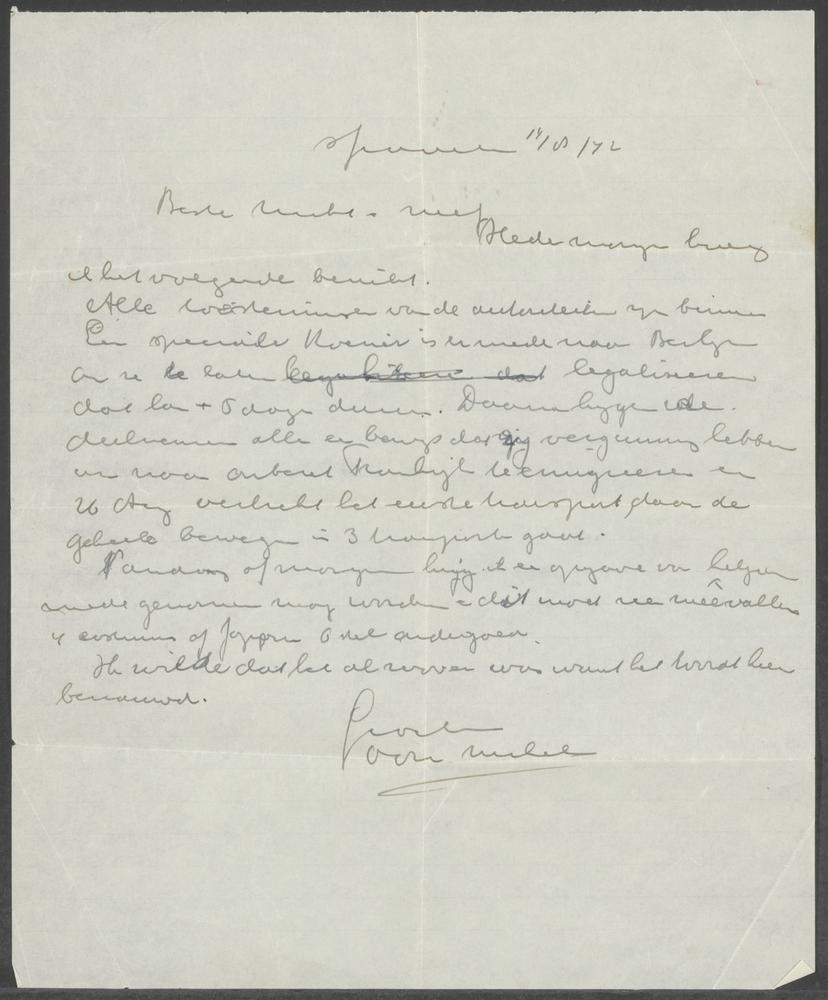 14/8/42
Beste
Hedenmorgen kreeg
ik het volgende bericht.
Alle toestemmingen van de autoriteiten zijn binnen
Een speciale Koerier is ermede naar Berlijn
om ze te laten legaliseeren
dat kan + 8 dagen duren. Daarna krijgen de
deelnemers alle een bewijs dat zij vergunning hebben
om naar onbezet Frankrijk te emigreeren en
26 Aug vertrekt het eerste transport daar de
geheele beweging in 3 transporten gaat.
Vandaag of morgen krijg ik een opgave van hetgeen
medegenomen mag worden dit moet meêvallen
4 costuums of Japonnen 6 stel ondergoed.
Ik wilde dat het al zoover was want het wordt hier
benauwd.
Groeten
Oom